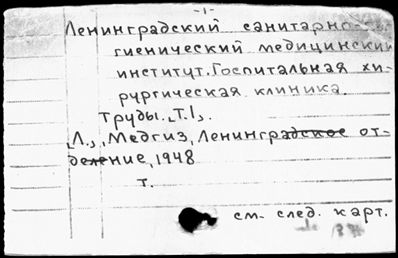 -1-
Ленинградский санитарно-
гиенический медицинский
институт. Госпитальная хи-
рургическая клиника.
Труды. Т.1.
Л., Медгиз, Ленинградское от-
деление, 1948
т.
см. след. карт.